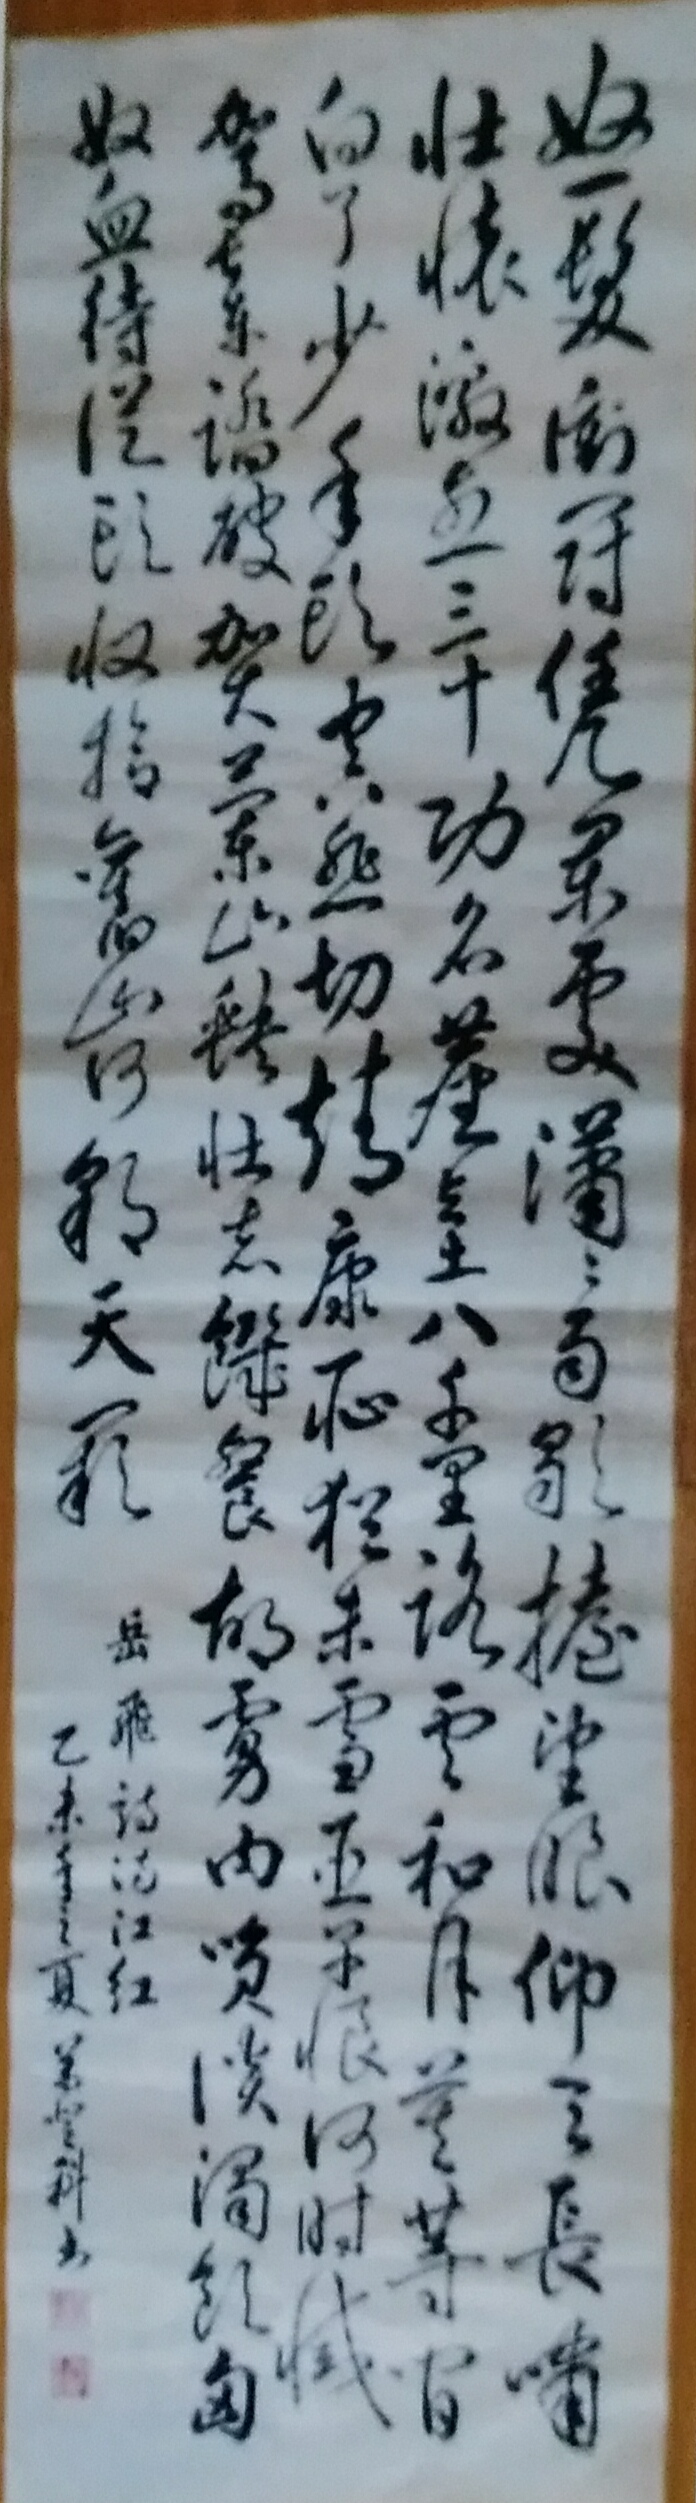 怒髮衝冠凭闌處瀟瀟雨歇擡望眼仰天長嘯
壯懷激烈三十功名塵與土八千里路雲和月莫等閒
白了少年頭空悲切靖康恥猶未雪臣子恨何時滅
駕長車踏破賀蘭山缺壯志饑餐胡虜肉笑談渴飲匈
奴血待從頭收拾舊山河朝天闕
岳飛詩滿江紅
乙未年之夏 登科书